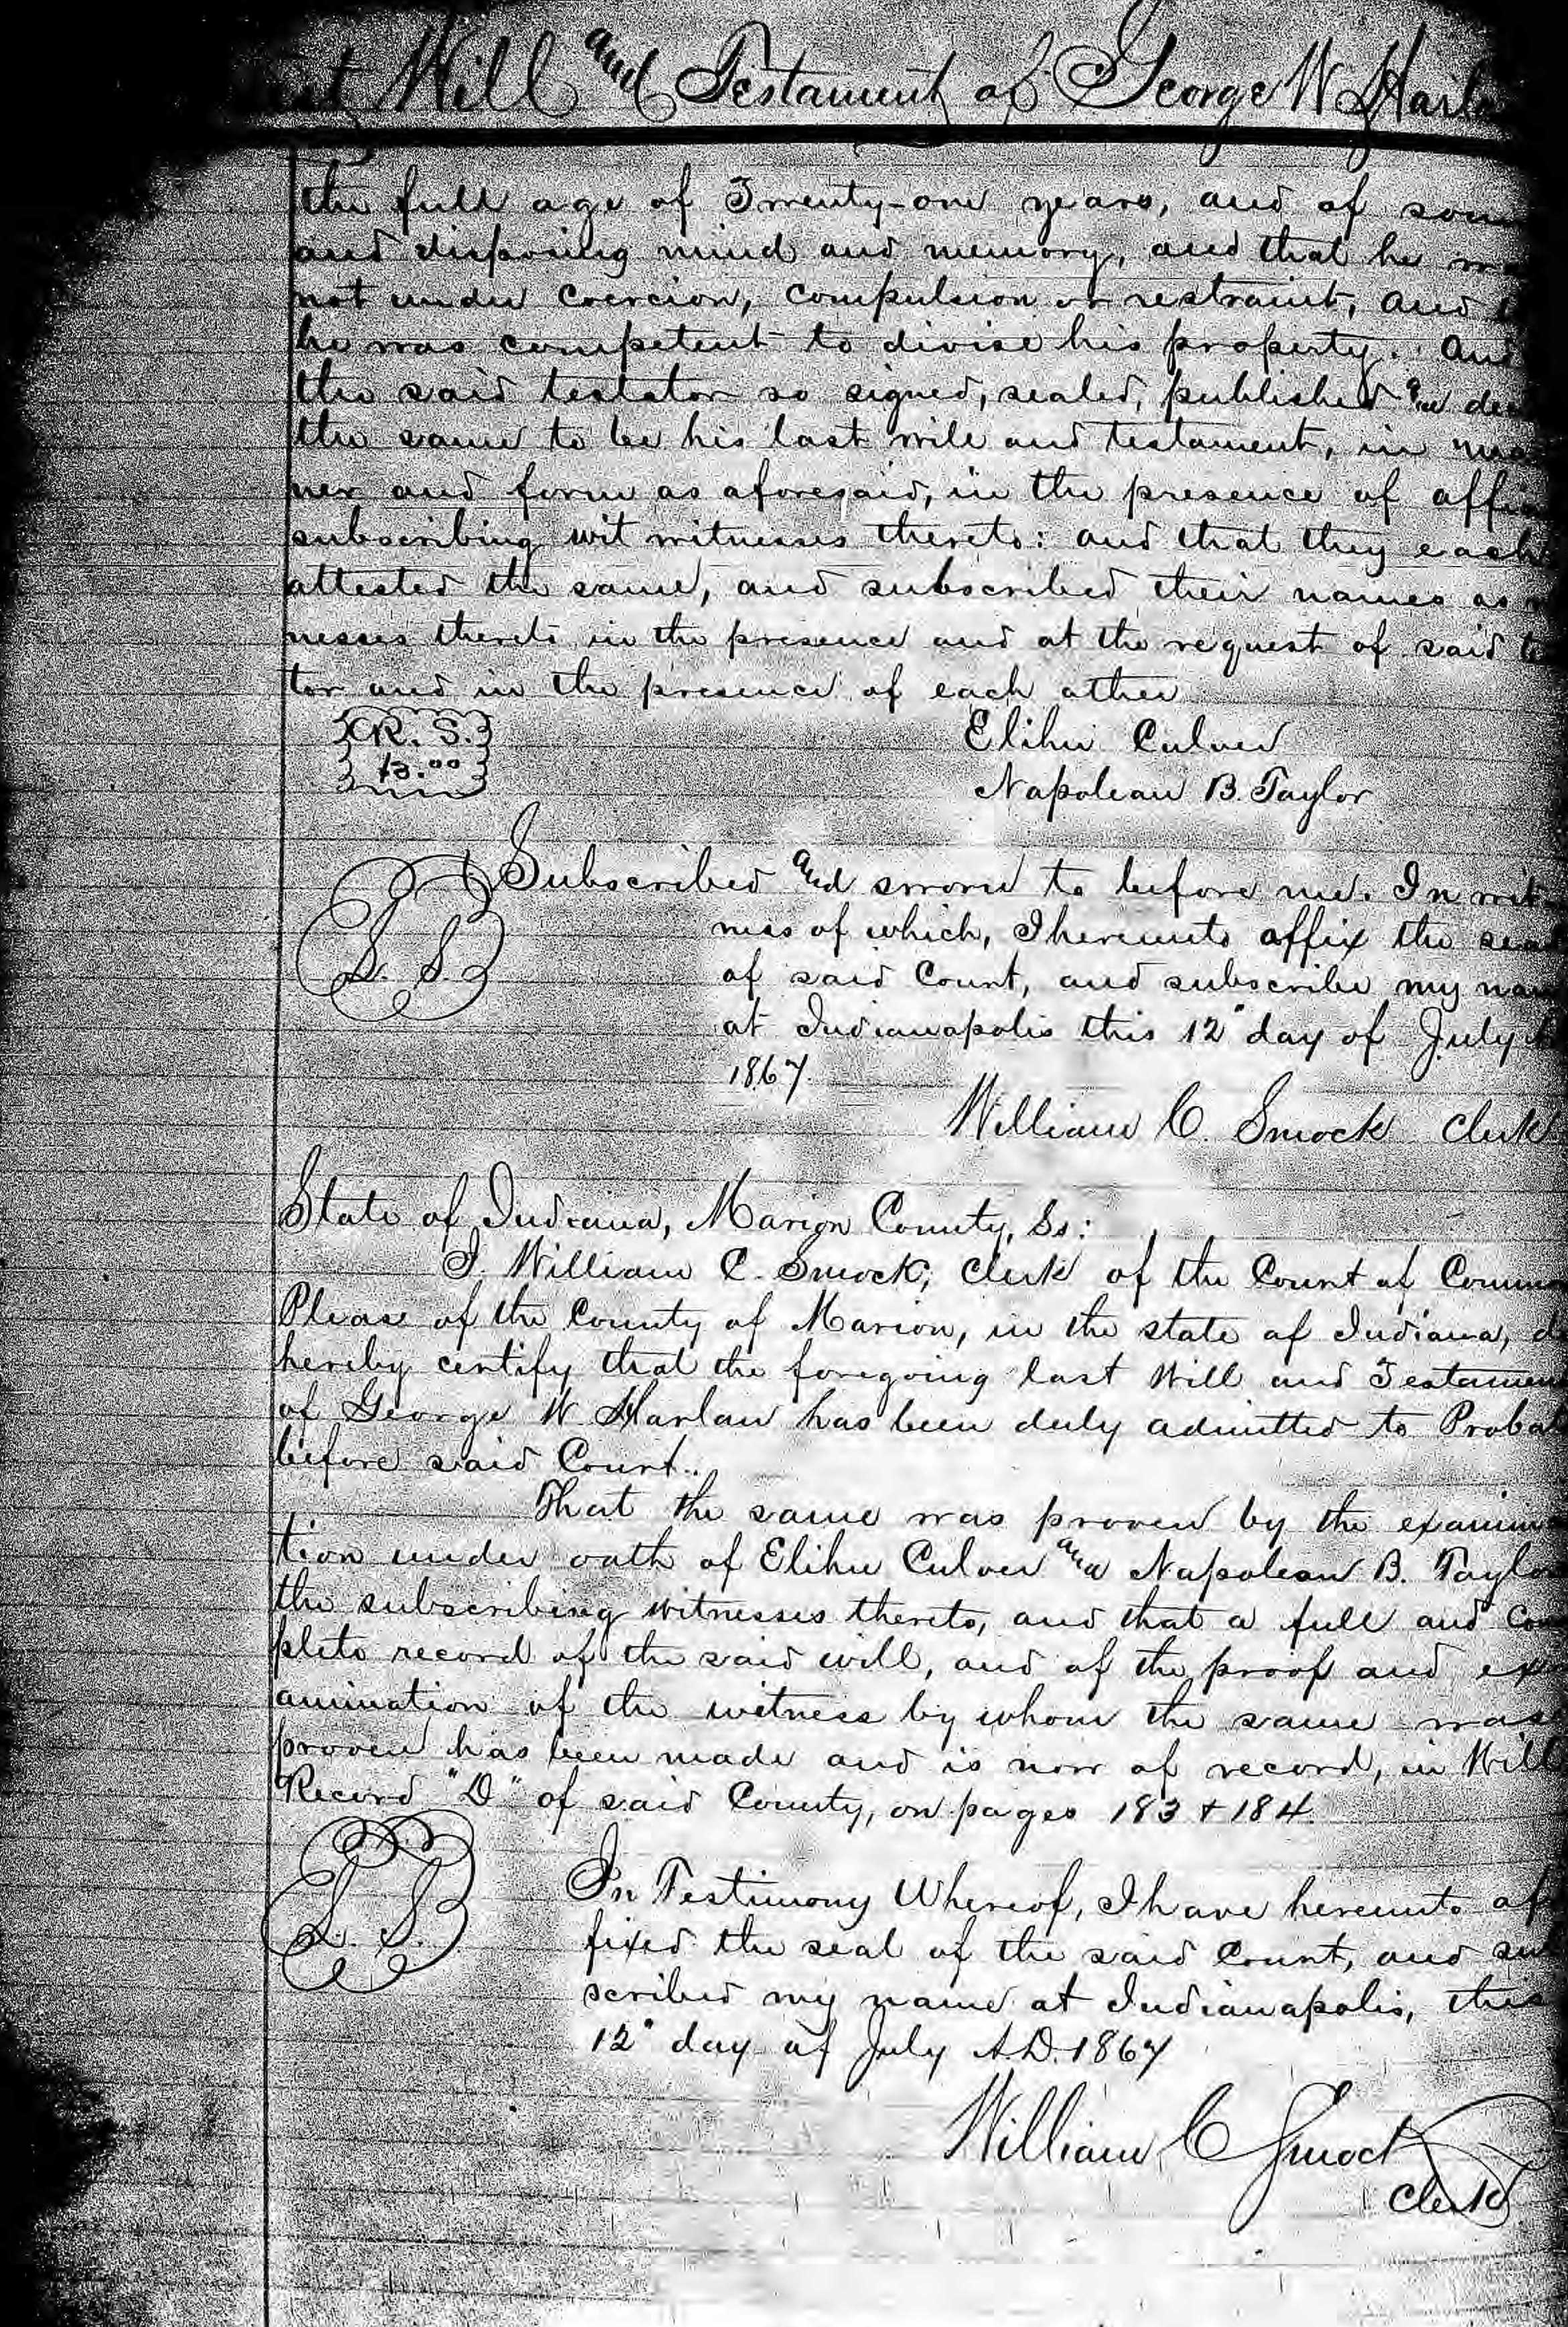 Will and Testament of George W Harla
the full age of Twenty-one years, and of soun
and disposing mind and memory, and that he wa
not under coercion, compulsion or restraint, and
he was competent to divise his property. And
the said testator so signed, sealed, published and de
the same to be his last will and testament, in ma
ner and form as aforesaid, in the presence of affi
subscribing wit witnesses thereto: and that they each
attested the same, and subscribed their names as
nesses thereto in the presence and at the request of said te
tor and in the presence of each other
R. S.
Elihu Culver
Napoleon B. Taylor
Subscribed and sworn to before me. In wit
ness of which, I hereunto affix the sea
L. S.
of said Court, and subscribe my nam
at Indianapolis this 12" day of July
1867.
William C. Smock Clerk
State of Indiana, Marion County, Ss:
I. William C. Smock, Clerk of the Court of Commo
Please of the County of Marion, in the state of Indiana, d
hereby certify that the foregoing last Will and Testamen
of George W. Harlan has been duly admitted to Proba
before said Court.
That the same was proven by the examina
tion under oath of Elihu Culver and Napoleon B. Taylo
the subscribing witnesses thereto, and that a full and com
plete record of the said will, and of the proof and ex
amination of the witness by whom the same was
proven has been made and is now of record, in Will
Record "D" of said County, on pages 183 & 184.
In Testimony Whereof, I have hereunto af
L. S.
fixed the seal of the said Court, and sub
scribed my name at Indianapolis, this
12" day of July A.D. 1867
William C Smock
Clerk